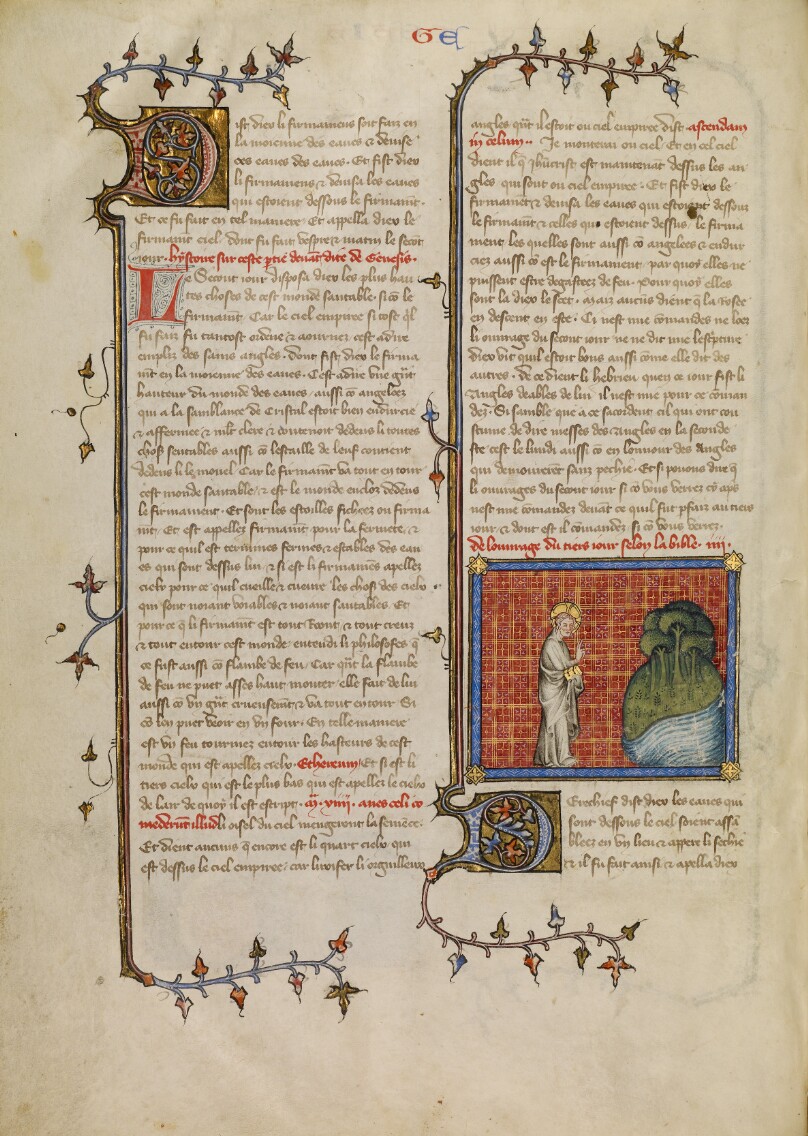 GE
Dist dieu li firmamens soit faiz en
la moienne des eaues & deuise
ces eaues des eaues. Et fist dieu
li firmamens & deuisa les eaues
qui estoient dessous le firmamt.
Et ce fu fait en tel maniere. Et appella dieu le
firmamt ciel dont fu fait vespre & matin le secōt
iour. hystoire sur ceste ptie deuāt dite de Genesis.
Le Secont iour disposa dieu les plus hau
tes choses de cest monde sautable. si cō le
firmamt. Car le ciel empiree si tost ql
fu fait fu tantost ordene & aournez cest adire
empliz des sains angles. dont fist dieu le firma
mt en la moienne des eaues. Cest adire vne
hauteur du monde des eaues. aussi cō angelees
qui a la samblance de Cristal estoit bien endurcie
& affermee & mlt clere & contenoit dedens li toutes
choses sentables aussi cō lescaille de leuf contient
dedens li le moiel. Car le firmamt va tout en tour
cest monde sautable. & est le monde enclos dedens
le firmament. Et sont les estoilles fichees ou firma
mt. Et est appellez firmamt pour la fermete, &
pour ce quil est termines fermes & estables des eau
es qui sont dessus lui, & si est li firmamēs apellez
cielx pour ce quil cueille & cueure les choses des cielx
qui sont noiant voiables & noiant sautables. Et
pour ce q̄ li firmamt est tout Roont, & tout creux
& tout entour cest monde. entendi li philosofes q̄
ce fust aussi cō flambe de feu. Car qūt la flambe
de feu ne puet asses haut monter elle fait de lui
aussi cō vn crueusemt & va tout entour. Si
cō lon puet veoir en vn four. En telle maniere
est vn feu tournez entour les hasteurs de cest
monde qui est apellez cielx. Ethereum. Et si est li
tiers cielx qui est le plus bas qui est apellez le cielx
de lair de quoy il est escript. aues celi co
mederunt illud li oisel du ciel mengeront la semēce.
Et dient aucuns q̄ encore est li quart cielx qui
est dessus le ciel empiree. car lucifer li orguilleux
angles qūt il estoit ou ciel empiree dist. ascendam
in celum.. Je monterai ou ciel. Et en cel ciel
dient il q̄ Jhūcrist est maintenāt dessus les an
gles qui sont ou ciel empiree. Et fist dieu le
firmamēt & deuisa les eaues qui estoient dessouz
le firmamt & celles qui estoient dessus le firma
ment les quelles sont aussi cō angelees & endur
cies aussi cō est le firmament par quoy elles ne
puissent estre degastees de feu. Pour quoy elles
sont la dieu le scet. maiz aucūs dient q̄ la Rosee
en descent en este. Ci nest mie cōmandes ne loez
li ouurage du secont iour ne ne dit mie lescpture
dieu vit quil estoit bons aussi cōme elle dit des
autres. de ce dient li hebrieu quen ce iour fist li
Angles deables de lui il nest mie pour ce cōman
dez. Si samble que a ce sacordent cil qui ont cou
stume de dire messes des Angles en la seconde
ferie cest le lundi aussi cō en lonnour des Angles
qui demourerēt sanz pechie. Et si pouons dire q̄
li ouurages du secont iour si cō vous verrez cy aps
nest mie cōmandez deuāt ce quil fut pfaiz au tiers
iour & dont est il cōmandez si cō vous verrez.
de louurage du tiers iour selon la bible. iiij.
Derechief dist dieu les eaues qui
sont dessous le ciel soient assā
blees en vn lieu & appere li seche
& il fu fait ainsi & apella dieu